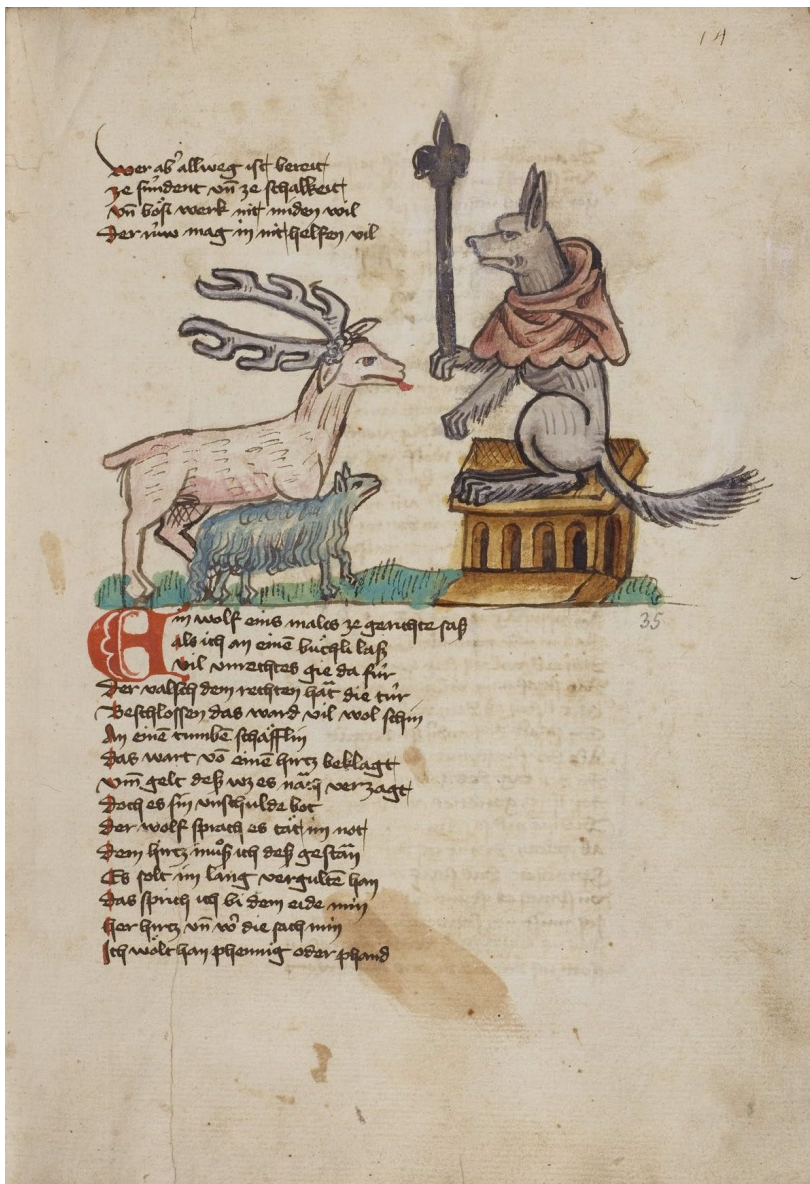 14
wer ab' allweg ist bereit
ze sündent vn̄ ze schalkeit
vn̄ bösi werk nit miden wil
Der rüw mag in nit helfen vil
Ein wolf eins males ze gerichte saß
als ich an einē büchli laß
vil vnrechtes gie da für
Der valsch dem rechten hāt die tür
Beschlossen das ward vil wol schin
An einē tumben schäfflin
das wart vō einē hirtz beklagt
vm̄ gelt deß wz es verzagt
Doch es sin vnschulde bot
Der wolf sprach es tät im not
Dem hirtz muͦß ich deß gestān
Es solt im lang vergultē han
das sprich ich bi dem eide min
her hirtz vn̄ die sach min
Ich wölt han phennig oder phand
35